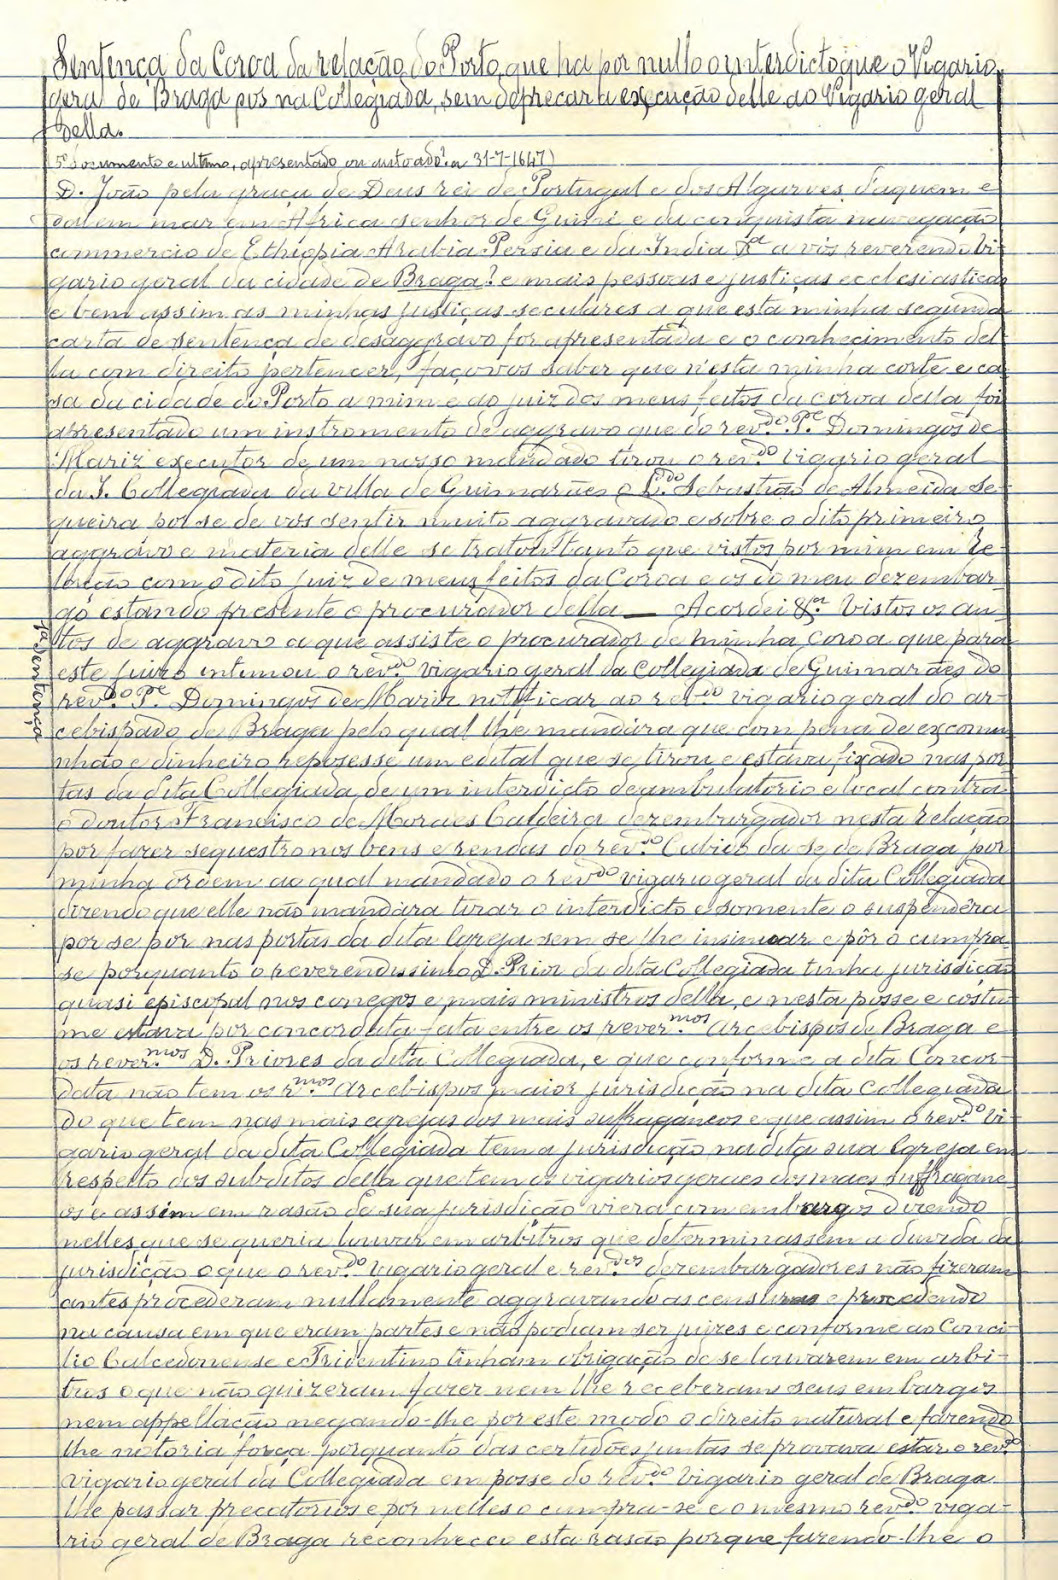 Sentença da Coroa da relação do Porto, que ha por nullo o interdicto que o Vigario
geral de Braga pos na Collegiada, sem deprecar a execução delle ao Vigario geral
della.
(5º documento e ultimo, apresentado ou autoado a 31-7-1647)
D. João pela graça de Deus rei de Portugal e dos Algarves daquem e
dalem mar em Africa senhor de Guiné e da conquista navegação
commercio de Ethiopia Arabia Persia e da India &ª a vós reverendo vi-
gario geral da cidade de Braga? e mais pessoas e justiças ecclesiasticas
e bem assim as minhas justiças seculares a que esta minha segunda
carta de sentença de desaggravo for apresentada e o conhecimento del-
la com direito pertencer, faço vos saber que n'esta minha corte e ca-
sa da cidade do Porto a mim e ao juiz dos meus feitos da coroa della foi
apresentado um instromento de aggravo que do rev.do P.e Domingos de
Mariz executor de um nosso mandado tirou o rev.do vigario geral
da I. Collegiada da villa de Guimarães o L.do Sebastião de Almeida Se-
queira por se de vós sentir muito aggravado e sobre o dito primeiro
aggravo e materia delle se tratou tanto que vistos por mim em Re-
lação com o dito juiz de meus feitos da Coroa e os do meu dezembar-
go estando presente o procurador della — Acordei &ª. Vistos os au-
tos de aggravo a que assiste o procurador de minha coroa que para
este juizo intentou o rev.do vigario geral da Collegiada de Guimarães do
rev.do P.e Domingos de Mariz notificar ao rev.do vigario geral do ar-
cebispado de Braga pelo qual lhe mandára que com pena de excomu-
nhão e dinheiro repozesse um edital que se tirou e estava fixado nas por-
tas da dita Collegiada, de um interdicto deambulatorio e local contra
o doutor Francisco de Moraes Caldeira dezembargador nesta relação
por fazer sequestro nos bens e rendas do rev.do Cabido da se de Braga por
minha ordem ao qual mandado o rev.do vigario geral da dita Collegiada
dizendo que elle não mandára tirar o interdicto e somente o suspendêra
por se por nas portas da dita Igreja sem se lhe insinuar e pôr o cumpra-
se porquanto o reverendissimo D. Prior da dita Collegiada tinha jurisdição
quasi episcopal nos conegos e mais ministros della, e nesta posse e costu-
me estava por concordata feita entre os rever.mos Arcebispos de Braga e
os rever.mos D. Priores da dita Collegiada, e que conforme a dita Concor-
data não tem os r.mos Arcebispos maior jurisdição na dita Collegiada
do que tem nas mais egrejas dos mais suffraganeos e que assim o rev.do vi-
gario geral da dita Collegiada tem a jurisdição na dita sua Igreja em
respeito dos subditos della que tem os vigarios geraes dos mais suffragane-
os e assim em rasão de sua jurisdição viera com embargos dizendo
nelles que se queria louvar em arbitros que determinassem a duvida da
jurisdição o que o rev.do vigario geral e rev.dos dezembargadores não fizeram
antes procederam nullamente aggravando as censuras e procedendo
na causa em que eram partes e não podiam ser juizes e conforme ao Conci-
lio Calcedonense e Tridentino tinham obrigação de se louvarem em arbi-
tros o que não quizeram fazer nem lhe receberam seus embargos
nem appellação negando-lhe por este modo o direito natural e fazendo
lhe notoria força porquanto das certidões juntas se provava estar o rev.do
vigario geral da Collegiada em posse do rev.do vigario geral de Braga
lhe passar precatorios e por nelles o cumpra-se e o mesmo rev.do viga-
rio geral de Braga reconheceo esta rasão porque fazendo-lhe o
1ª Sentença